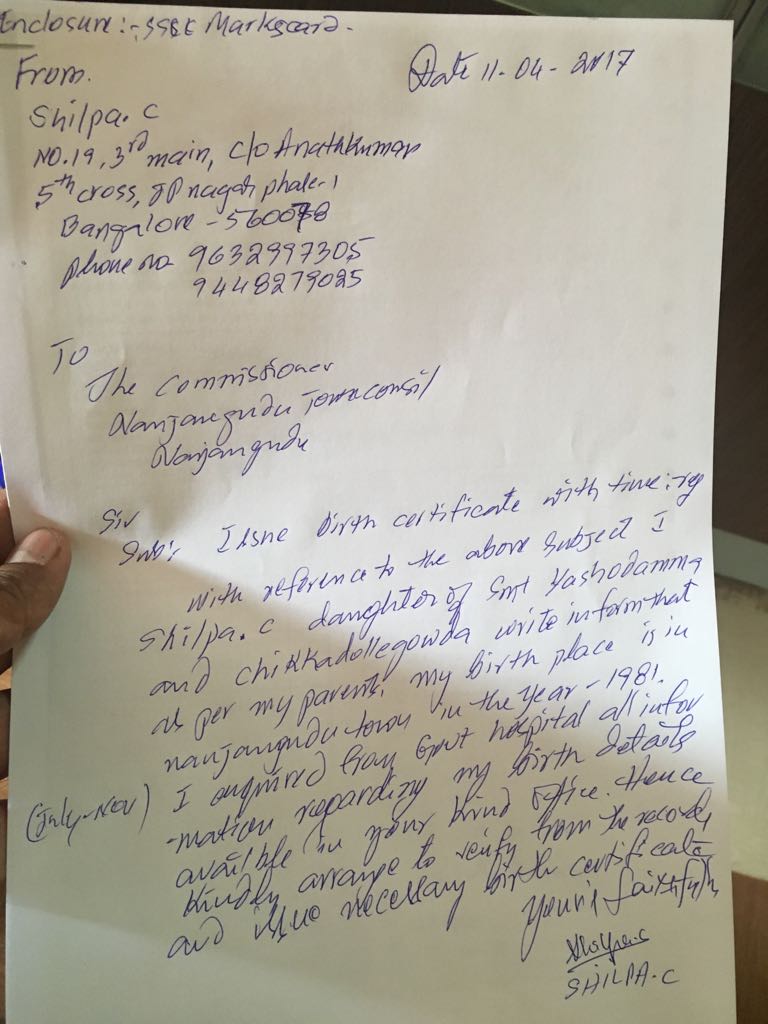 Enclosure:- SSLC Markscard.
Date 11-04-2017
From.
Shilpa. C
NO.19, 3rd main, C/o Anathkumar
5th cross, JP nagar phase-1
Bangalore - 560078
phone no 9632997305
9448279025
To
The Commissioner
Nanjangudu Town consil
Nanjangudu
Sir
Sub:- Issue birth certificate with time:reg
with reference to the above subject I
Shilpa. C daughter of Smt Yashodamma
and chikkadollegowda write inform that
as per my parents, my birth place is in
nanjangudu town in the year - 1981.
(July-Nov) I enquired from Govt hospital all infor
-mation regarding my birth details
available in your kind office. Hence
Kindly arrange to verify from the records
and issue necessary birth certificate
your's faithfully
Shilpa.c
SHILPA.C